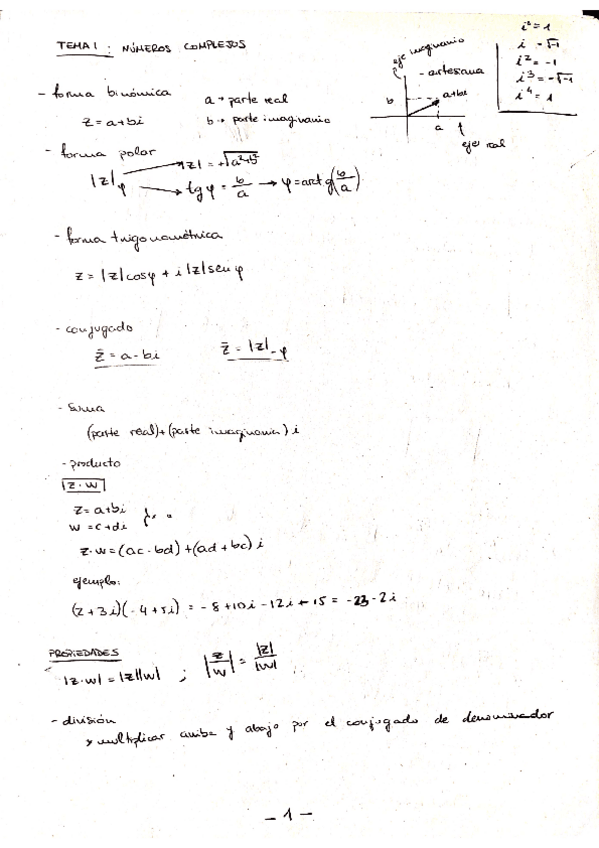 TEMA 1 : NÚMEROS COMPLEJOS
eje imaginario
- cartesiana
b
a+bi
a
eje real
i⁰ = 1
i = √-1
i² = -1
i³ = -√-1
i⁴ = 1
- forma binómica
a → parte real
z = a+bi
b → parte imaginario
- forma polar
|z|φ
|z| = +√a²+b²
tg φ = b/a → φ = arctg(b/a)
- forma trigonométrica
z = |z|cosφ + i |z|sen φ
- conjugado
z̄ = a - bi
z̄ = |z|-φ
- suma
(parte real)+(parte imaginaria) i
- producto
|z·w|
z = a+bi
w = c+di
z·w = (ac-bd)+(ad+bc) i
ejemplo:
(2+3i)(-4+5i) = -8+10i-12i+15 = -23-2i
PROPIEDADES
|z·w| = |z||w| ; |z/w| = |z|/|w|
- división
multiplicar arriba y abajo por el conjugado de denominador
- 1 -